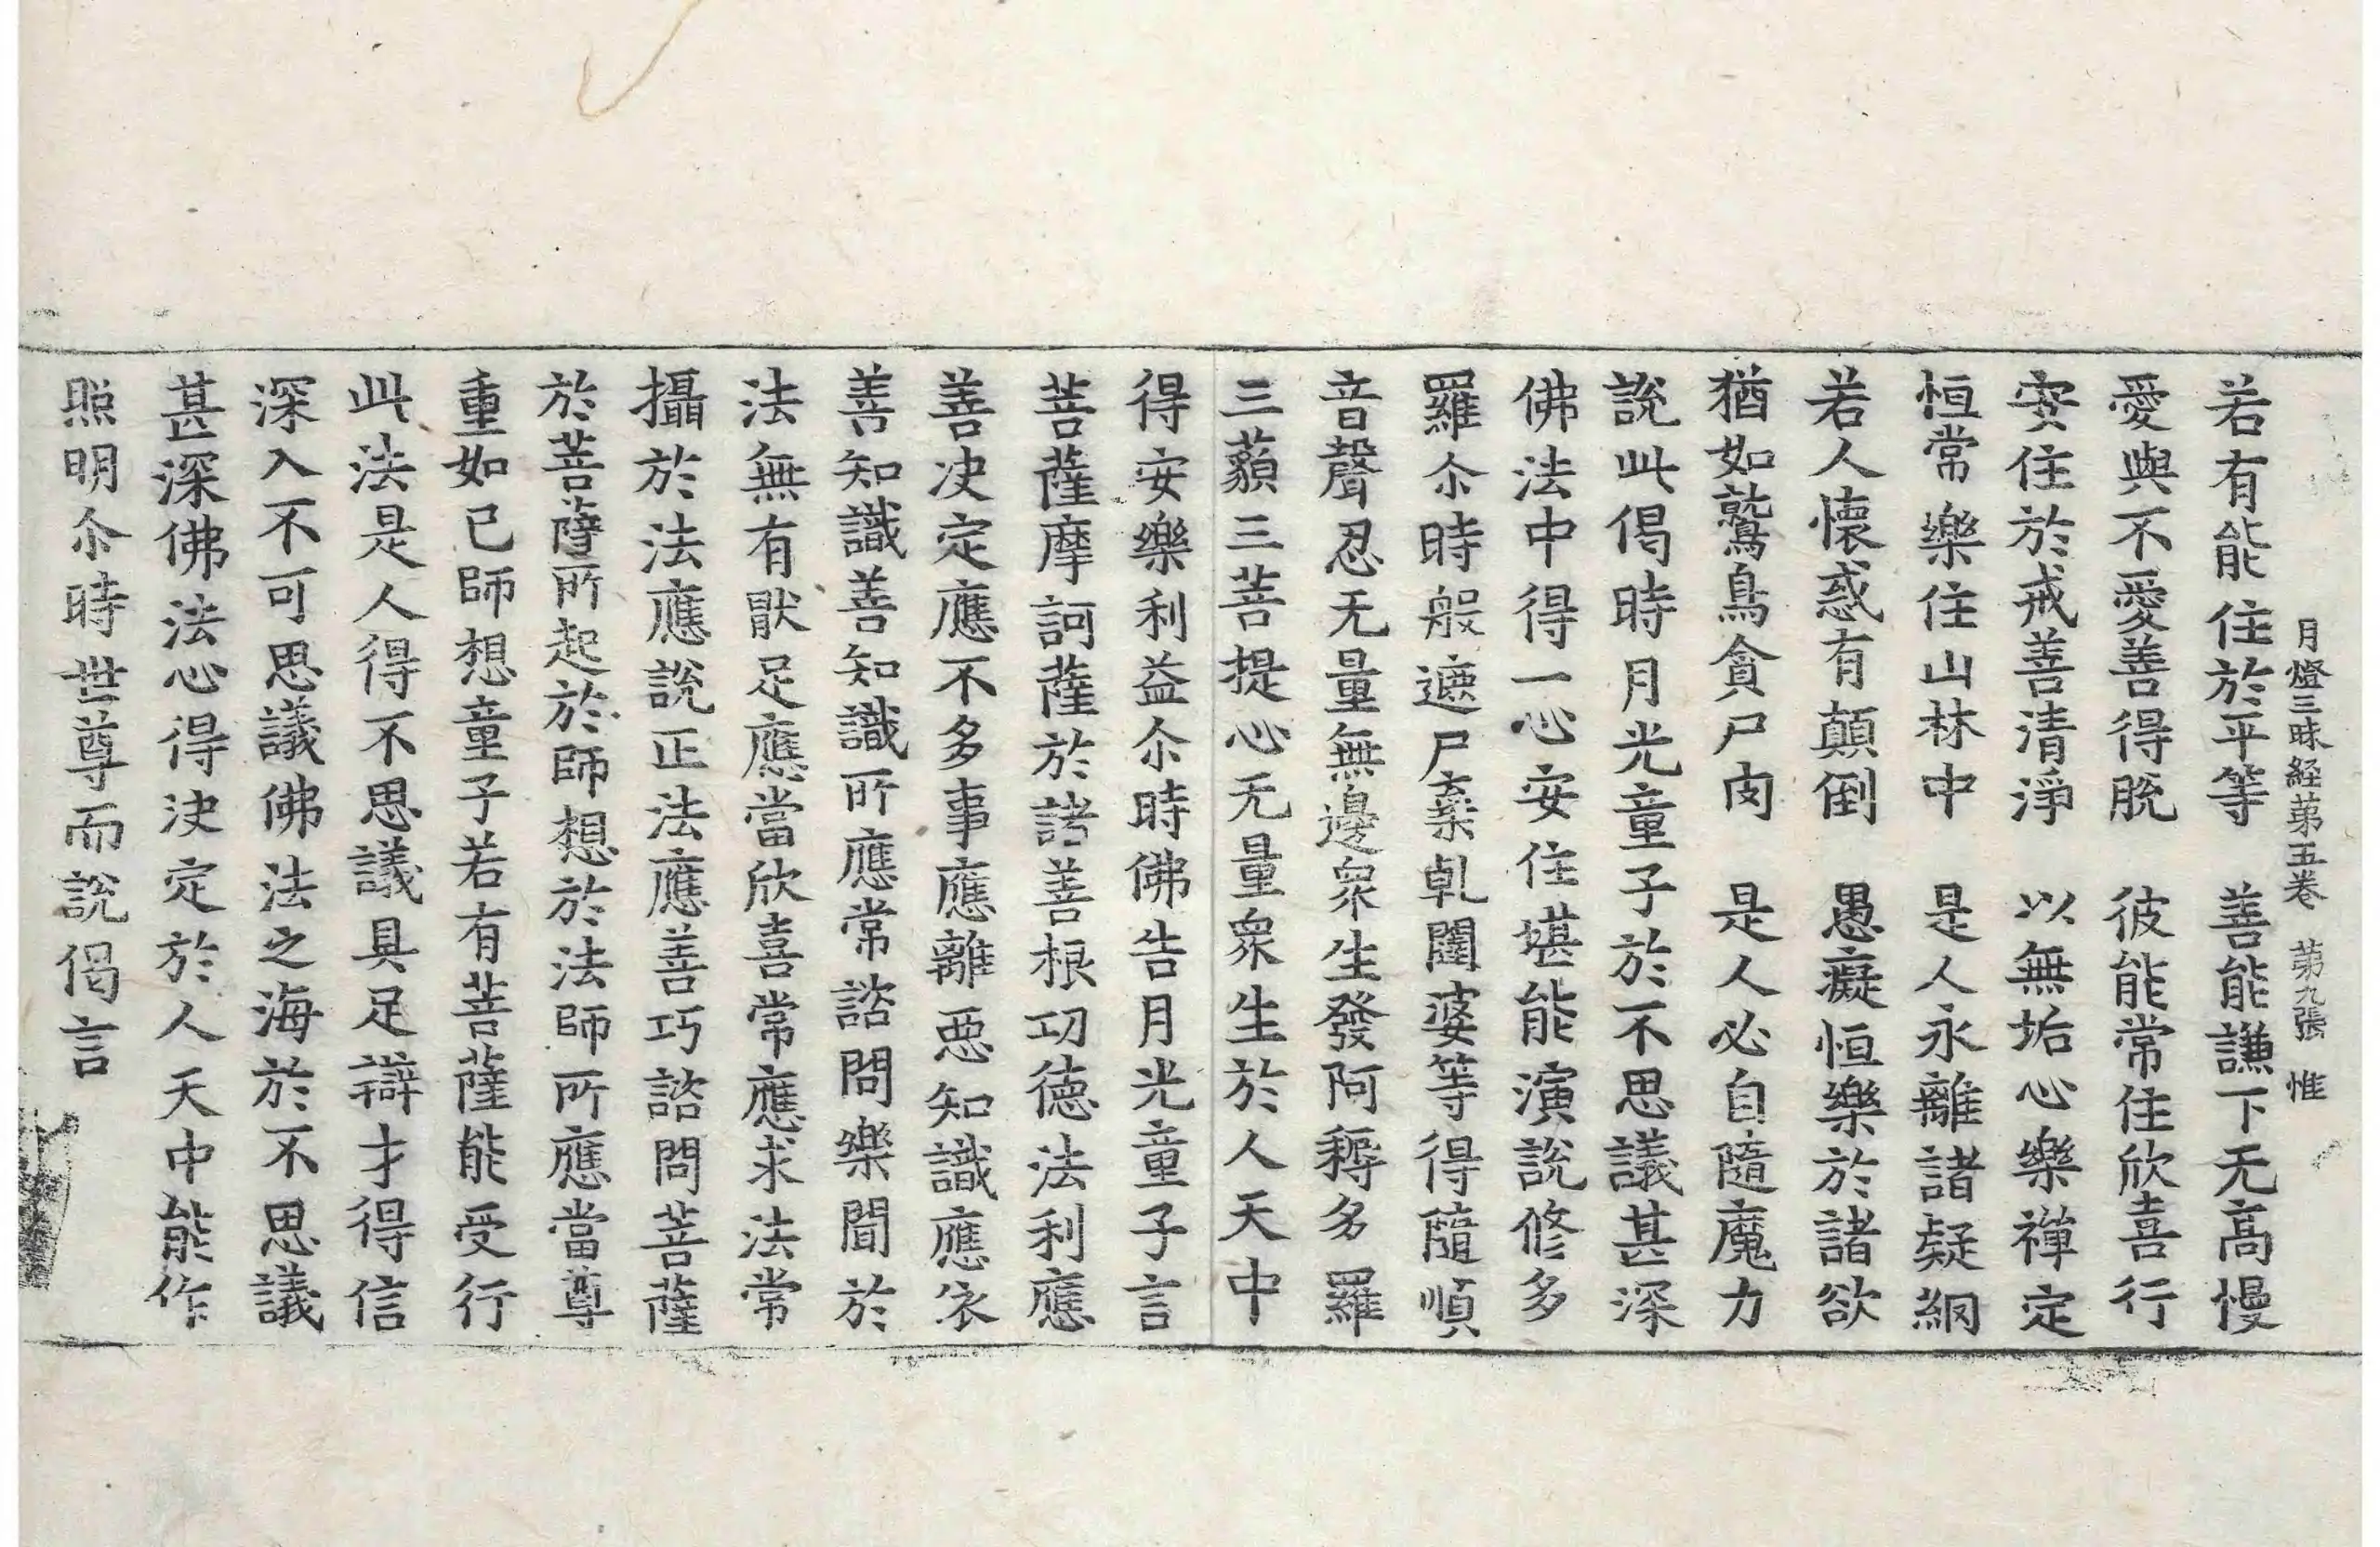 月燈三昧経第五卷　第九張　惟
若有能住於平等　善能謙下无高慢
愛與不愛善得脫　彼能常住欣喜行
安住於戒善清淨　以無垢心樂禪定
恒常樂住山林中　是人永離諸疑網
若人懷惑有顛倒　愚癡恒樂於諸欲
猶如鷲鳥貪尸肉　是人必自隨魔力
說此偈時月光童子於不思議甚深
佛法中得一心安住堪能演說修多
羅尒時般遮尸棄乹闥婆等得隨順
音聲忍无量無邊衆生發阿耨多羅
三藐三菩提心无量衆生於人天中
得安樂利益尒時佛告月光童子言
菩薩摩訶薩於諸善根功德法利應
善决定應不多事應離惡知識應依
善知識善知識所應常諮問樂聞於
法無有猒足應當欣喜常應求法常
攝於法應說正法應善巧諮問菩薩
於菩薩所起於師想於法師所應當尊
重如已師想童子若有菩薩能受行
此法是人得不思議具足辯才得信
深入不可思議佛法之海於不思議
甚深佛法心得决定於人天中能作
照明尒時世尊而說偈言